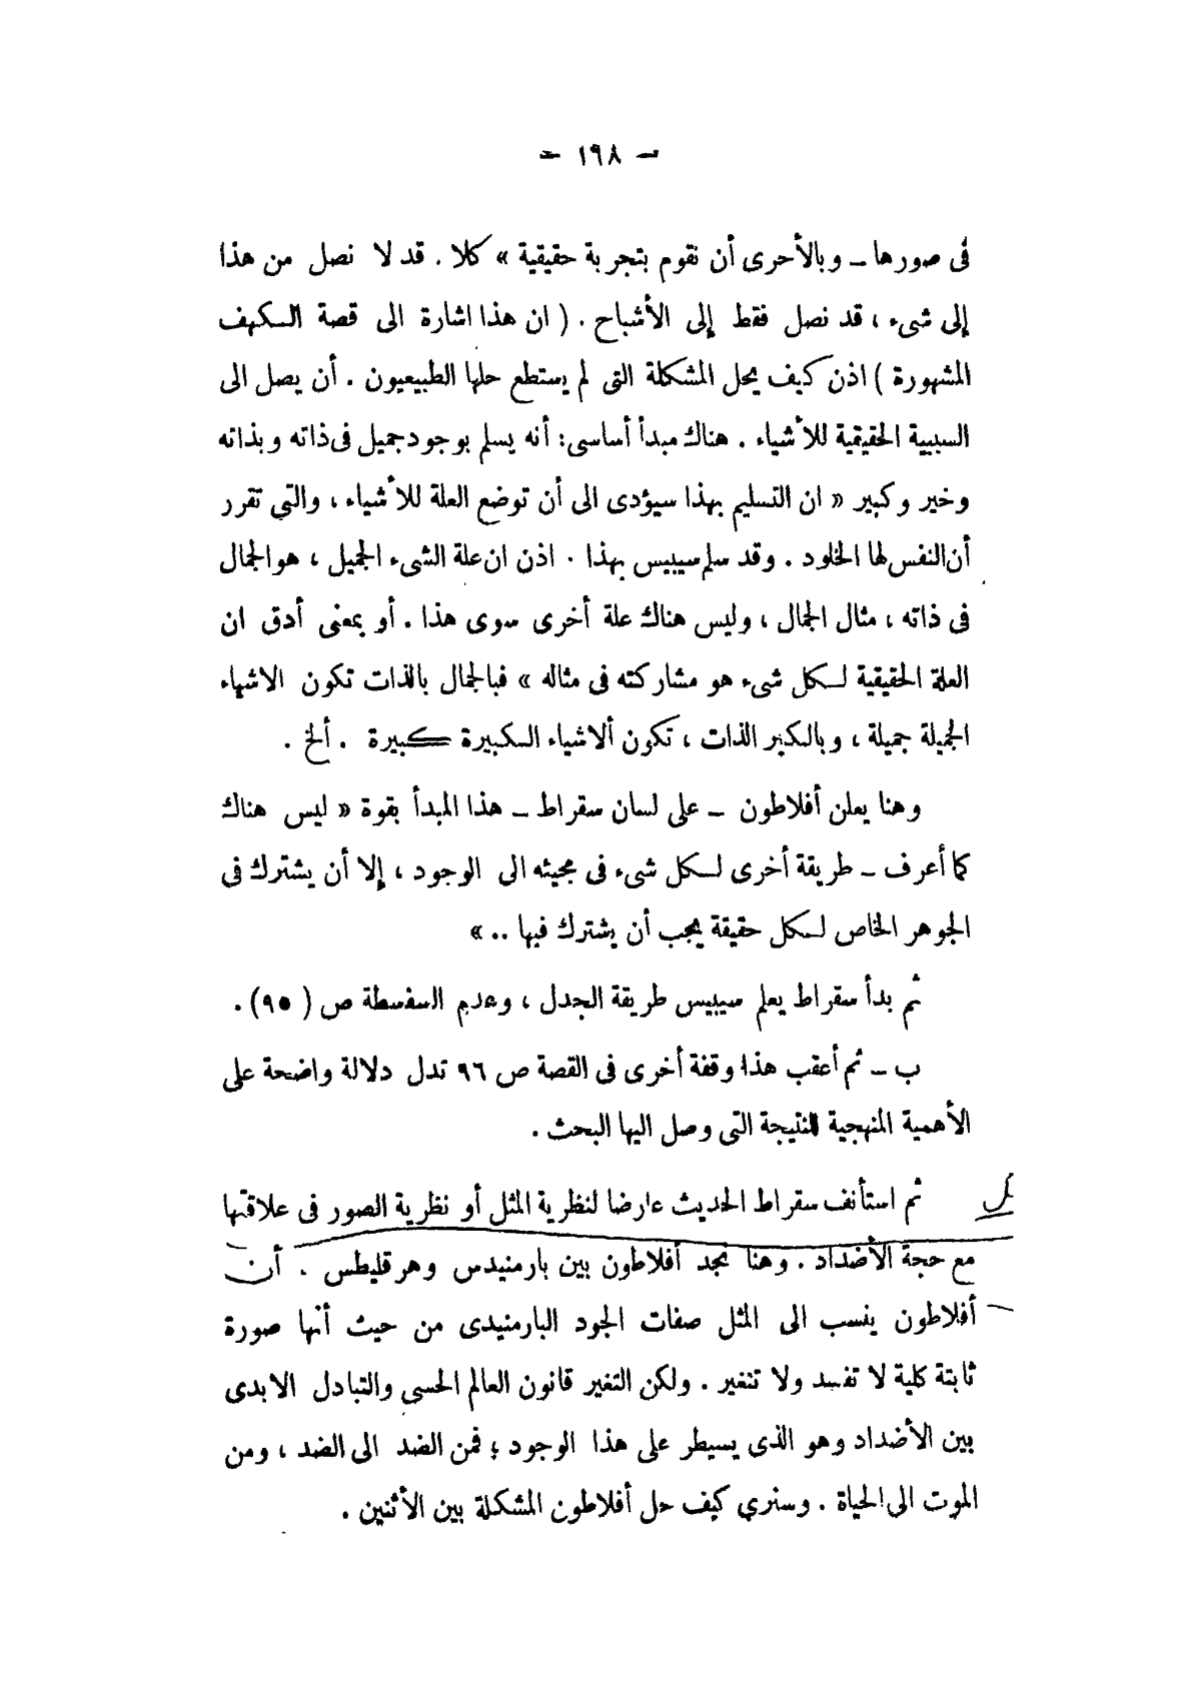 — ١٩٨ —
فى صورها — وبالأحرى أن نقوم بتجربة حقيقية » كلا . قد لا نصل من هذا
إلى شىء ، قد نصل فقط إلى الأشباح . ( ان هذا اشارة الى قصة الكهف
المشهورة ) اذن كيف يحل المشكلة التى لم يستطع حلها الطبيعيون . أن يصل الى
السببية الحقيقية للأشياء . هناك مبدأ أساسى : أنه يسلم بوجود جميل فى ذاته وبذاته
وخير وكبير « ان التسليم بهذا سيؤدى الى أن توضع العلة للأشياء ، والتي تقرر
أن النفس لها الخلود . وقد سلم سيبيس بهذا . اذن ان علة الشىء الجميل ، هو الجمال
فى ذاته ، مثال الجمال ، وليس هناك علة أخرى سوى هذا . أو بمعنى أدق ان
العلة الحقيقية لكل شىء هو مشاركته فى مثاله » فبالجمال بالذات تكون الاشياء
الجميلة جميلة ، وبالكبر الذات ، تكون ألاشياء الكبيرة كبيرة . ألخ .
وهنا يعلن أفلاطون — على لسان سقراط — هذا المبدأ بقوة « ليس هناك
كما أعرف — طريقة أخرى لكل شىء فى مجيئه الى الوجود ، إلا أن يشترك فى
الجوهر الخاص لكل حقيقة يجب أن يشترك فيها .. »
ثم بدأ سقراط يعلم سيبيس طريقة الجدل ، وعدم السفسطة ص ( ٩٥ ) .
ب — ثم أعقب هذا وقفة أخرى فى القصة ص ٩٦ تدل دلالة واضحة على
الأهمية المنهجية للنتيجة التى وصل اليها البحث .
ثم استأنف سقراط الحديث عارضا لنظرية المثل أو نظرية الصور فى علاقتها
مع حجة الأضداد . وهنا نجد أفلاطون بين بارمنيدس وهرقليطس . أن
أفلاطون ينسب الى المثل صفات الجود البارمنيدى من حيث أنها صورة
ثابتة كلية لا تفسد ولا تتغير . ولكن التغير قانون العالم الحسى والتبادل الابدى
بين الأضداد وهو الذى يسيطر على هذا الوجود ؛ فمن الضد الى الضد ، ومن
الموت الى الحياة . وسنرى كيف حل أفلاطون المشكلة بين الأثنين .